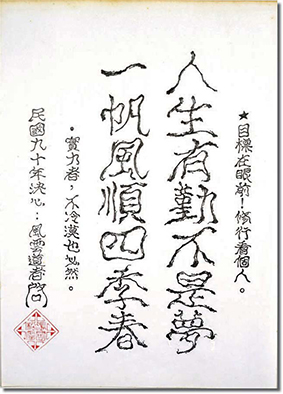 ★目標在眼前！修行看個人。
人生有勤不是夢
一帆風順四季春
。實力者，不冷漠也必然。
民國九十年決心：風雲道者啟